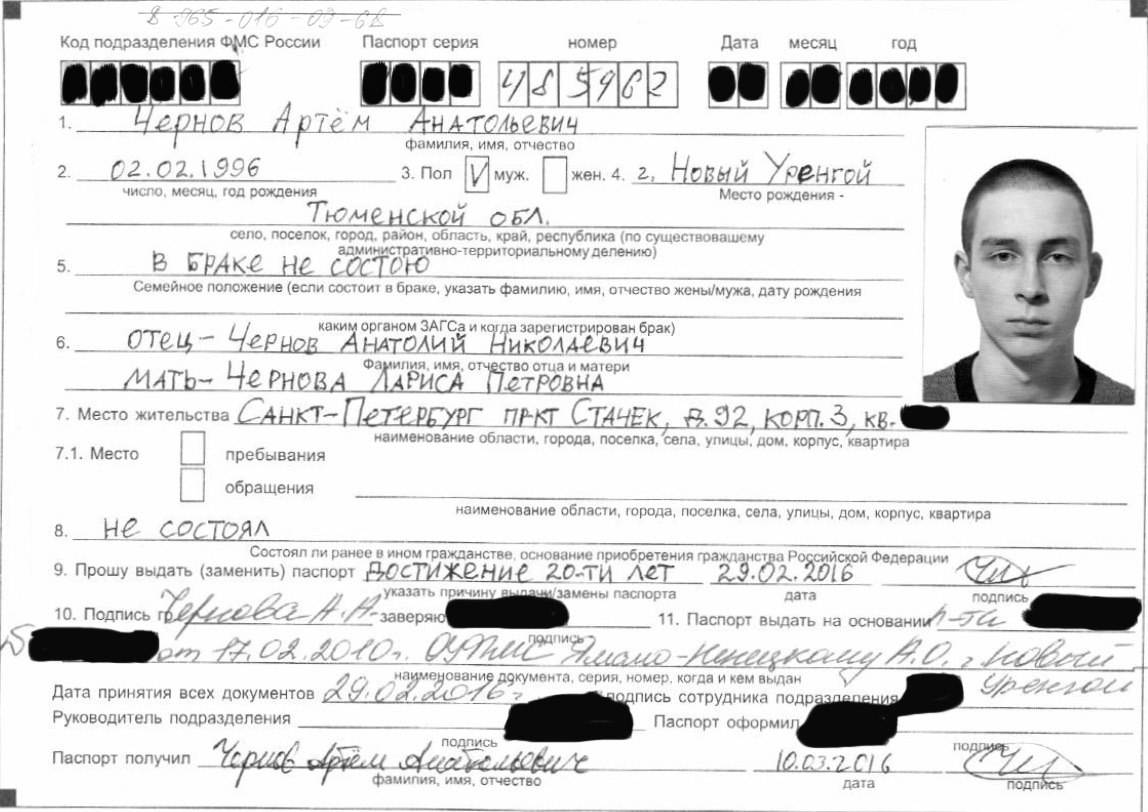 8 965-016-09-68
Код подразделения ФМС России Паспорт серия номер Дата месяц год
485962
1. Чернов Артём Анатольевич
фамилия, имя, отчество
2. 02.02.1996 3. Пол V муж. жен. 4. г. Новый Уренгой
число, месяц, год рождения Место рождения -
Тюменской обл.
село, поселок, город, район, область, край, республика (по существовашему
административно-территориальному делению)
5. В браке не состою
Семейное положение (если состоит в браке, указать фамилию, имя, отчество жены/мужа, дату рождения
каким органом ЗАГСа и когда зарегистрирован брак)
6. отец - Чернов Анатолий Николаевич
Фамилия, имя, отчество отца и матери
мать - Чернова Лариса Петровна
7. Место жительства Санкт-Петербург пр-кт Стачек, д.92, корп.3, кв.
наименование области, города, поселка, села, улицы, дом, корпус, квартира
7.1. Место пребывания
обращения
наименование области, города, поселка, села, улицы, дом, корпус, квартира
8. не состоял
Состоял ли ранее в ином гражданстве, основание приобретения гражданства Российской Федерации
9. Прошу выдать (заменить) паспорт достижение 20-ти лет 29.02.2016
указать причину выдачи/замены паспорта дата подпись
10. Подпись гр Чернова А.А. заверяю 11. Паспорт выдать на основании п-та
подпись
от 17.02.2010г. ОУФМС Ямало-Ненецкому А.О. г. Новый
наименование документа, серия, номер, когда и кем выдан
Уренгой
Дата принятия всех документов 29.02.2016г подпись сотрудника подразделения
Руководитель подразделения Паспорт оформил
подпись подпись
Паспорт получил Чернов Артём Анатольевич 10.03.2016
фамилия, имя, отчество дата подпись